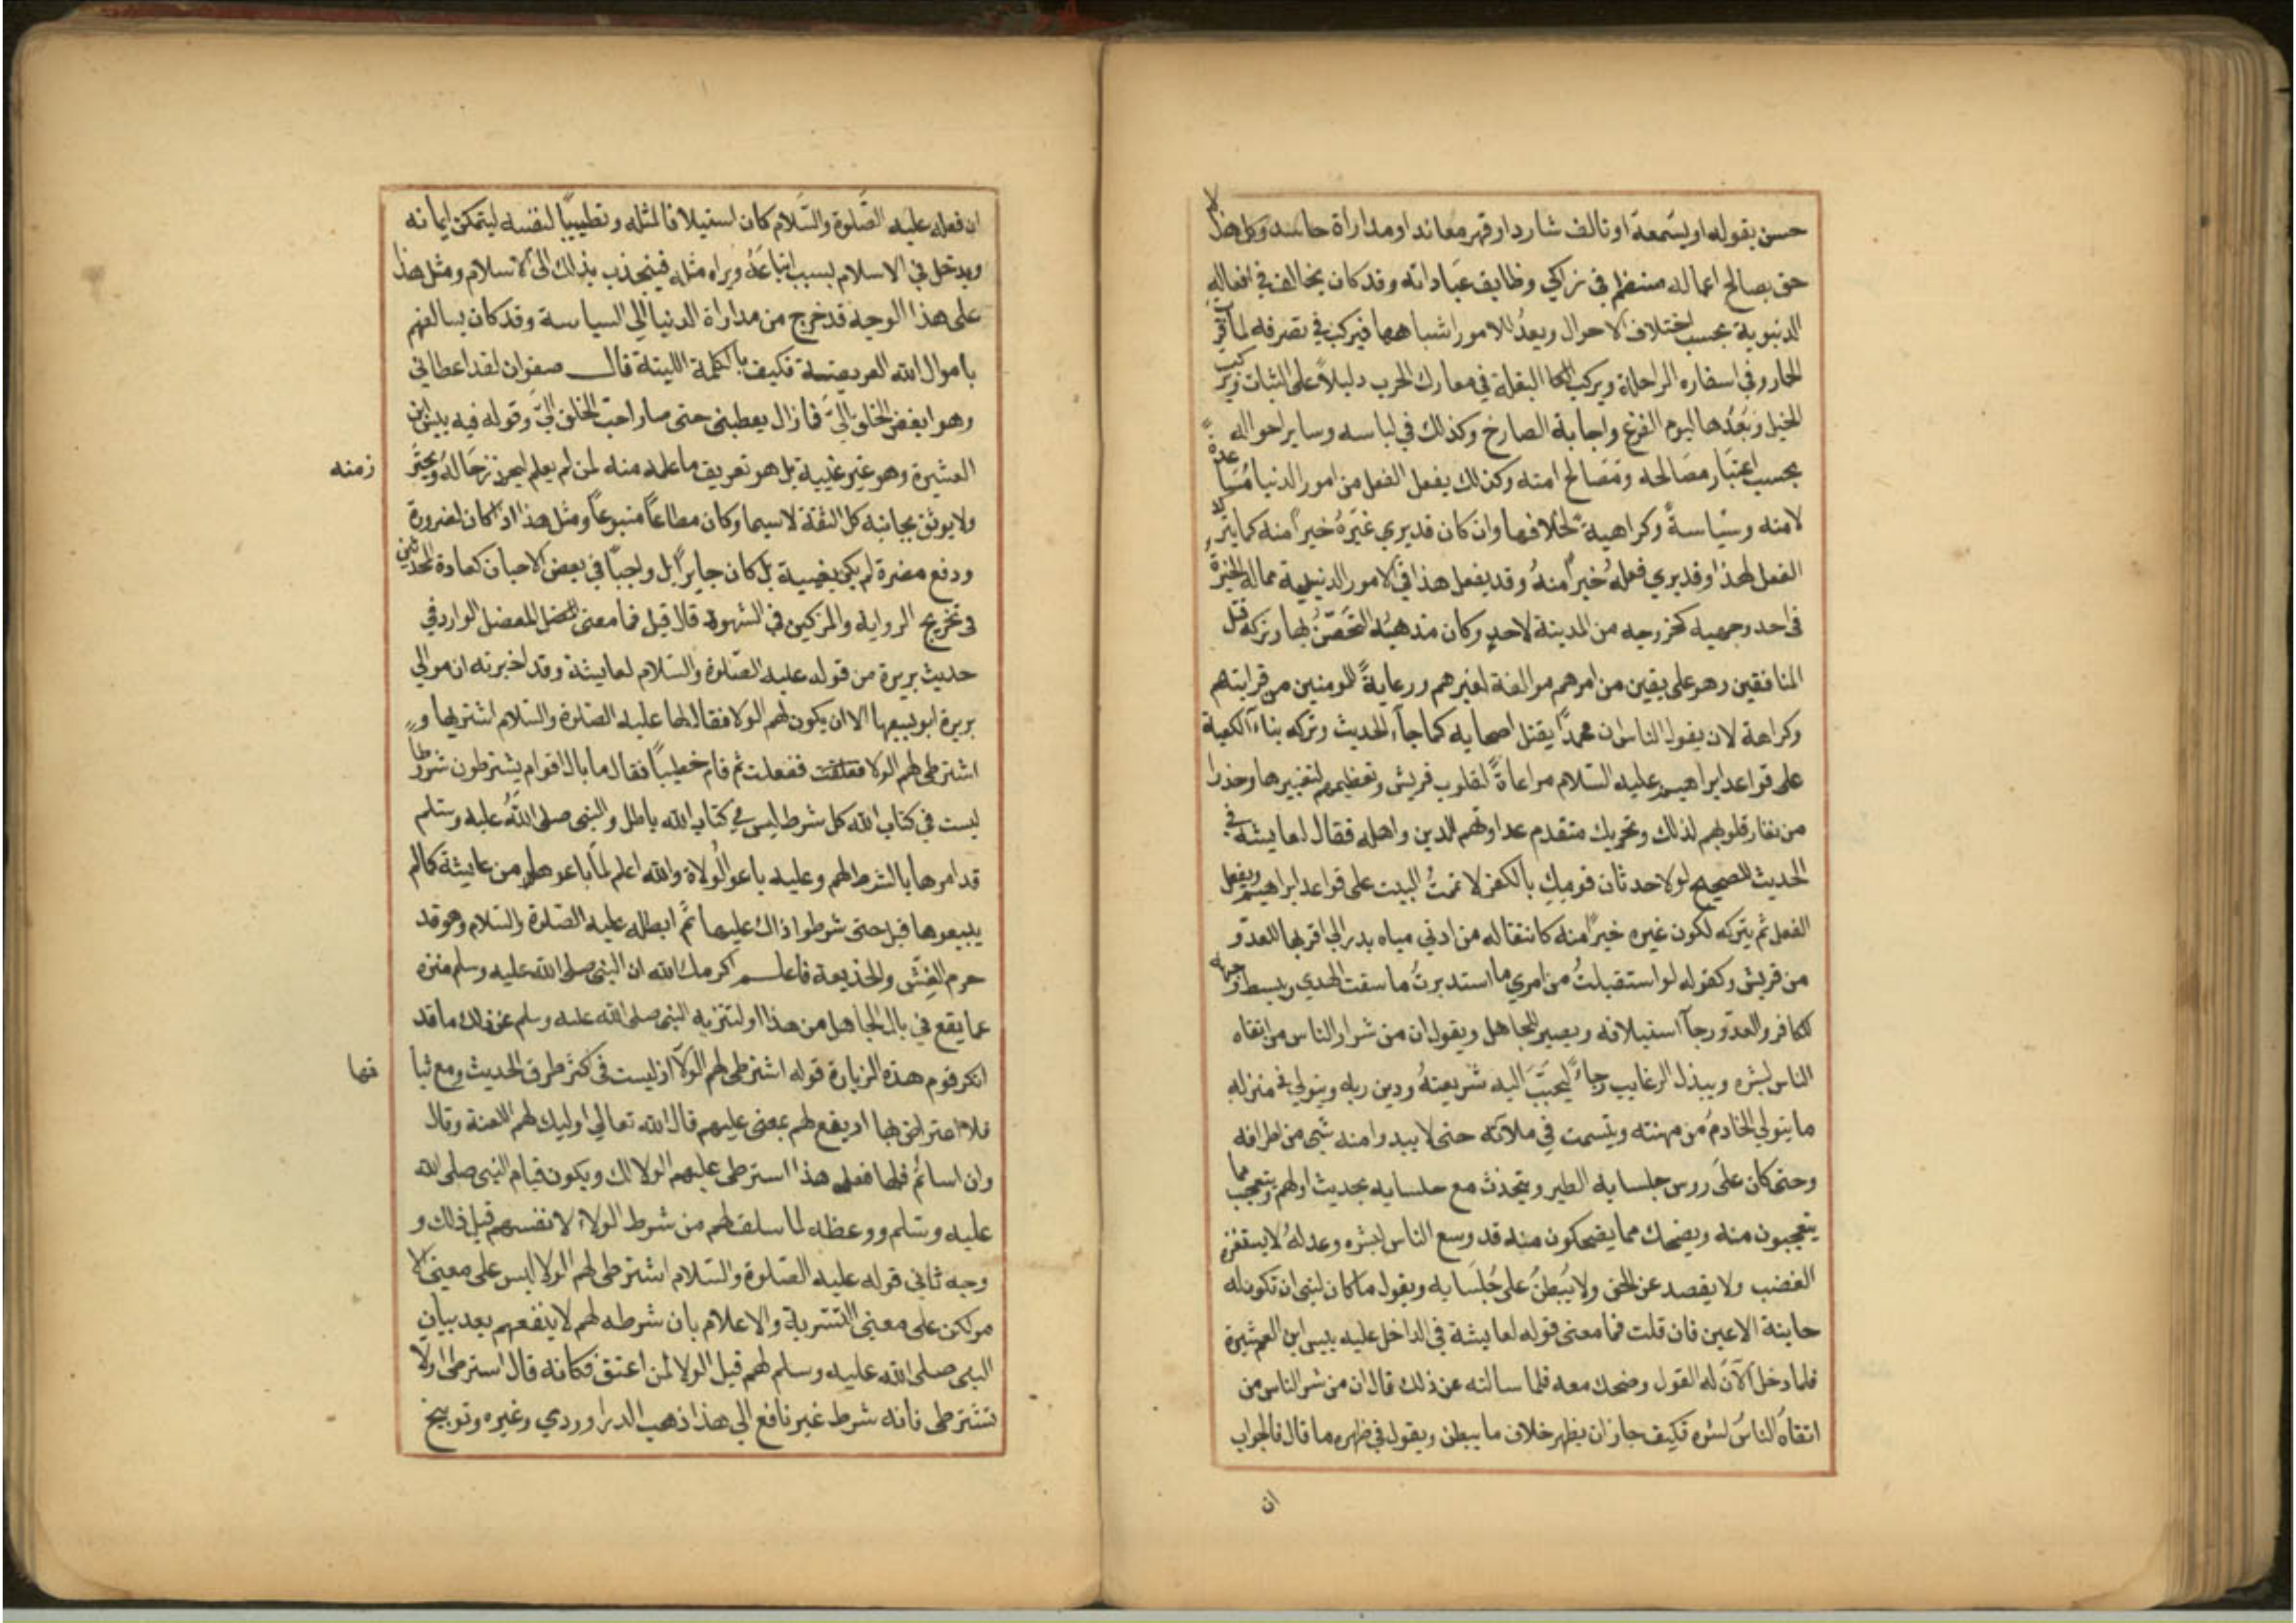 حسن يقوله او يسمعه او تالف شارد او قهر معاند او مداراة حاسد وكل هذا لا
حق بصالح اعماله منتظم في زاكي وظايف عباداته وقد كان يخالف في افعاله
الدنيوية بحسب اختلاف الاحوال ويعد للامور اشباهها فيركب في تصرفه لما قرب
الحمار وفي اسفاره الراحلة ويركب البغلة في معارك الحرب دليلاً على الثبات ويركب
الخيل ويعدها ليوم الفزع واجابة الصارخ وكذلك في لباسه وساير احواله
بحسب اعتبار مصالحه ومصالح امته وكذلك يفعل الفعل من امور الدنيا مساعدة
لامته وسياسة وكراهية لخلافها وان كان قد يري غيره خيراً منه كما يترك
الفعل لهذا وقد يري فعله خيراً منه وقد يفعل هذا في الامور الدينية مما له الخيرة
في احد وجهيه كخروجه من المدينة لاحد وكان مذهبه التحصن بها وتركه قتل
المنافقين وهو على يقين من امرهم موالفة لغيرهم ورعاية للمومنين من قرابتهم
وكراهة لان يقول الناس ان محمداً يقتل اصحابه كما جاء الحديث وتركه بناء الكعبة
على قواعد ابراهيم عليه السلام مراعاة لقلوب قريش وتعظيمهم لتغييرها وحذرا
من نفار قلوبهم لذلك وتحريك متقدم عداوتهم للدين واهله فقال لعايشة في
الحديث الصحيح لولا حدثان قومك بالكفر لاتممت البيت على قواعد ابراهيم ويفعل
الفعل ثم يتركه لكون غيره خيراً منه كانتقاله من ادني مياه بدر الي اقربها للعدو
من قريش وكقوله لو استقبلت من امري ما استدبرت ما سقت الهدي ويبسط وجهه
للكافر والعدو رجآ استيلافه ويصبر للجاهل ويقول ان من شرار الناس من اتقاه
الناس لشره ويبذل الرغايب رجاء ليحبب اليه شريعته ودين ربه ويتولي في منزله
ما يتولي الخادم من مهنته ويتسمت في ملآته حتى لا يبدوا منه شي من اطرافه
وحتى كان على روس جلسايه الطير ويتحدث مع جلسايه بحديث اولهم ويتعجب مما
يتعجبون منه ويضحك مما يضحكون منه قد وسع الناس بشره وعدله لا يستفزه
الغضب ولا يقصر عن الحق ولا يبطن على جلسايه ويقول ما كان لنبي ان تكون له
خاينة الاعين فان قلت فما معنى قوله لعايشة في الداخل عليه بيس ابن العشيرة
فلما دخل الآن له القول وضحك معه فلما سالته عن ذلك قال ان من شر الناس من
اتقاه الناس لشره فكيف جاز ان يظهر خلاف ما يبطن ويقول في ظهره ما قال فالجواب
ان
ان فعله عليه الصلوة والسلام كان استيلافا لمثله وتطييباً لنفسه ليتمكن ايمانه
ويدخل في الاسلام بسبب اتباعه ويراه مثله فينجذب بذلك الى الاسلام ومثل هذا
على هذا الوجه قد خرج من مداراة الدنيا الي السياسة وقد كان يسالفهم
باموال الله العريضة فكيف بالكلمة اللينة قال صفوان لقد اعطاني
وهو ابغض الخلق الي فما زال يعطيني حتى صار احب الخلق الي وقوله فيه بيس ابن
العشيرة وهو غير غيبة بل هو تعريف ما علمه منه لمن لم يعلم ليحذر حاله ويحترز
زمنه
ولا يوثق بجانبه كل الثقة لا سيما وكان مطاعاً متبوعاً ومثل هذا اذا كان لضرورة
ودفع مضرة لم يكن بغيبة بل كان جايزاً بل واجباً في بعض الاحيان كعادة المحدثين
في تخريج الرواية والمزكين في الشهود قال قيل فما معنى المعضل الوارد في
حديث بريرة من قوله عليه الصلوة والسلام لعايشة وقد اخبرته ان موالي
بريرة ابو بيعها الا ان يكون لهم الولا فقال لها عليه الصلوة والسلام اشتريها و
اشترطي لهم الولا ففعلت ثم قام خطيباً فقال ما بال اقوام يشترطون شروطاً
ليست في كتاب الله كل شرط ليس في كتاب الله باطل والنبي صلى الله عليه وسلم
قد امرها بالشرط لهم وعليه باعو ولولاه والله اعلم لما باعوها من عايشة كما لم
يبيعوها قبل حتى شرطوا ذلك عليها ثم ابطله عليه الصلوة والسلام وهو قد
حرم الغش والخديعة فاعلم اكرمك الله ان النبي صلى الله عليه وسلم منزه
عما يقع في بال الجاهل من هذا او لتنزيه النبي صلى الله عليه وسلم عن ذلك ما قد
انكر قوم هذه الزيادة قوله اشترطي لهم الولآ اذ ليست في اكثر طرق الحديث ومع ثبا
فلا اعتراض بها اذ يقع لهم بمعنى عليهم قال الله تعالي اوليك لهم اللعنة وقال
وان اساتم فلها فعلى هذا اشترطي عليهم الولا لك ويكون قيام النبي صلى الله
عليه وسلم ووعظه لما سلف لهم من شرط الولاء لانفسهم قبل ذلك و
وجه ثاني قوله عليه الصلوة والسلام اشترطي لهم الولا ليس على معنى الا
مر لكن على معنى التسوية والاعلام بان شرطه لهم لا ينفعهم بعد بيان
النبي صلى الله عليه وسلم لهم قبل الولا لمن اعتق فكانه قال اشترطي اولا
تشترطي فانه شرط غير نافع الي هذا ذهب الداوودي وغيره وتوبيخ